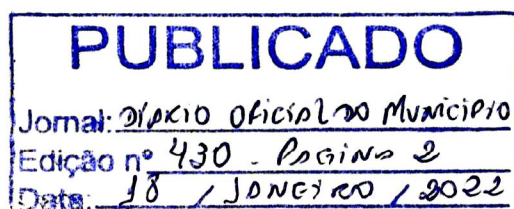 PUBLICADO
Jornal: DIÁRIO OFICIAL DO MUNICIPIO
Edição nº 430 - PAGINA 2
Data: 18 / JANEIRO / 2022